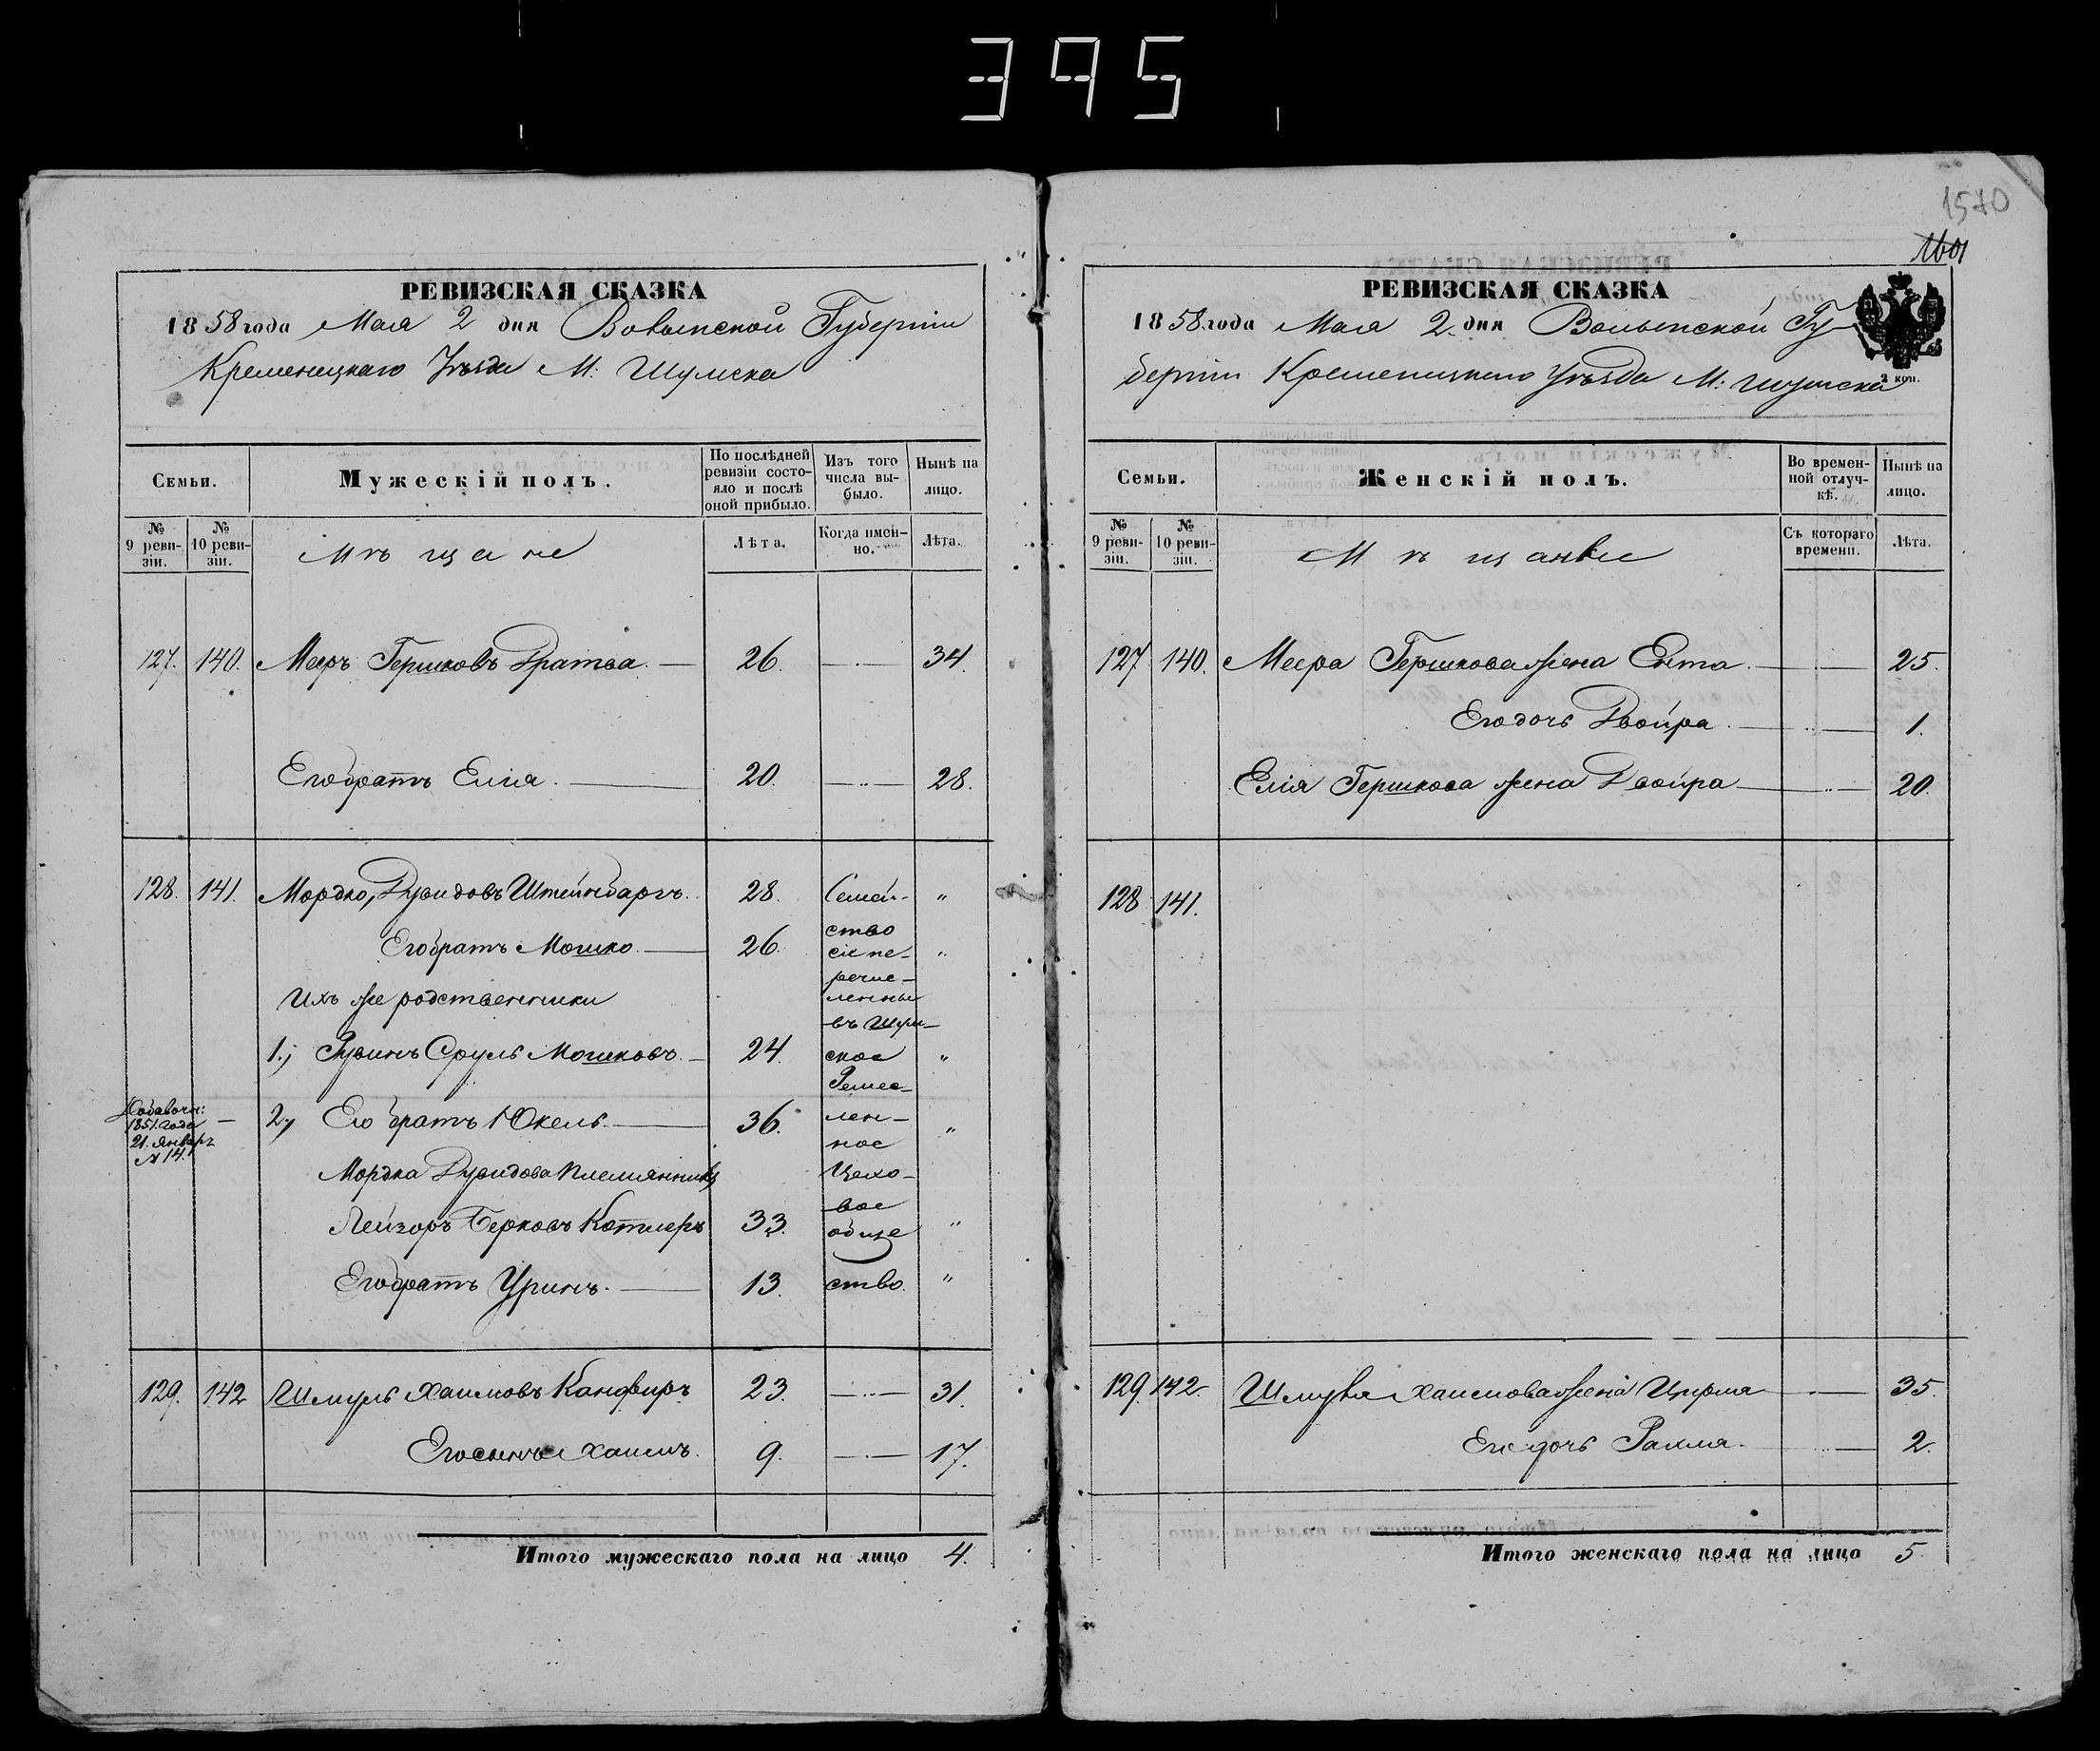 395
1570
1601
РЕВИЗСКАЯ СКАЗКА
1858 года Мая 2 дня Волынской Губерніи
Кременецкаго Уѣзда М: Шумска
Семьи.
Мужескій полъ.
По послѣдней ревизіи состояло и послѣ оной прибыло.
Изъ того числа выбыло.
Нынѣ на лицо.
№ 9 ревизіи.
№ 10 ревизіи.
Мѣщане
Лѣта.
Когда именно.
Лѣта.
127. 140. Меєръ Гершковъ Дратва. 26. 34.
Его братъ Елія. 20. 28.
128. 141. Мордко, Дувидовъ Штейнбаргъ. 28. Семей- "
Его братъ Мошко. 26. ство сіе пе- "
Ихъ же родственники речис- ленны
въ Шум-
1., Рувинъ Сруль Мошковъ. 24. ское "
Ремес-
Добавочн:
1851 года
21. Январъ
№ 14.
2, Его братъ Юкель. 36. лен- ное "
Мордка Дувидова племянники Цехо-
вое
Лейзоръ Берковъ Котлеръ 33. обще "
Его братъ Уринъ. 13. ство. "
129. 142 Шмуль Хаимовъ Канфиръ 23. 31.
Его сынъ Хаимъ. 9. 17.
Итого мужескаго пола на лицо 4.
РЕВИЗСКАЯ СКАЗКА
1858 года Мая 2 дня Волынской Гу-
берніи Кременецкаго Уѣзда М: Шумска
2 коп.
Семьи.
Женскій полъ.
Во временной отлучкѣ.
Нынѣ на лицо.
№ 9 ревизіи.
№ 10 ревизіи.
Мѣщанки
Съ котораго времени.
Лѣта.
127 140. Меера Гершкова жена Ента. 25.
Его дочь Двойра. 1.
Елія Гершкова жена Двойра 20.
128 141.
129 142. Шмуля Хаимова жена 35.
Его дочь Рахля. 2.
Итого женскаго пола на лицо 5.